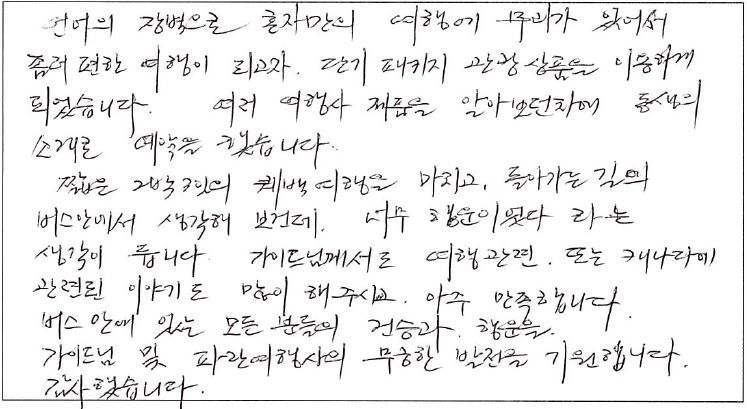 언어의 장벽으로 혼자만의 여행에 무리가 있어서
좀더 편한 여행이 되고자. 단기 패키지 관광 상품을 이용하게
되었습니다. 여러 여행사 제품을 알아보던차에 동생의
소개로 예약을 했습니다.
짧은 2박3일의 퀘백여행을 마치고, 돌아가는 길의
버스안에서 생각해 보건데. 너무 행운이었다 라는
생각이 듭니다. 가이드님께서도 여행관련. 또는 캐나다에
관련된 이야기도 많이 해주시고. 아주 만족합니다.
버스 안에 있는 모든 분들의 건승과 행운을.
가이드님 및 파란여행사의 무궁한 발전을 기원합니다.
감사했습니다.